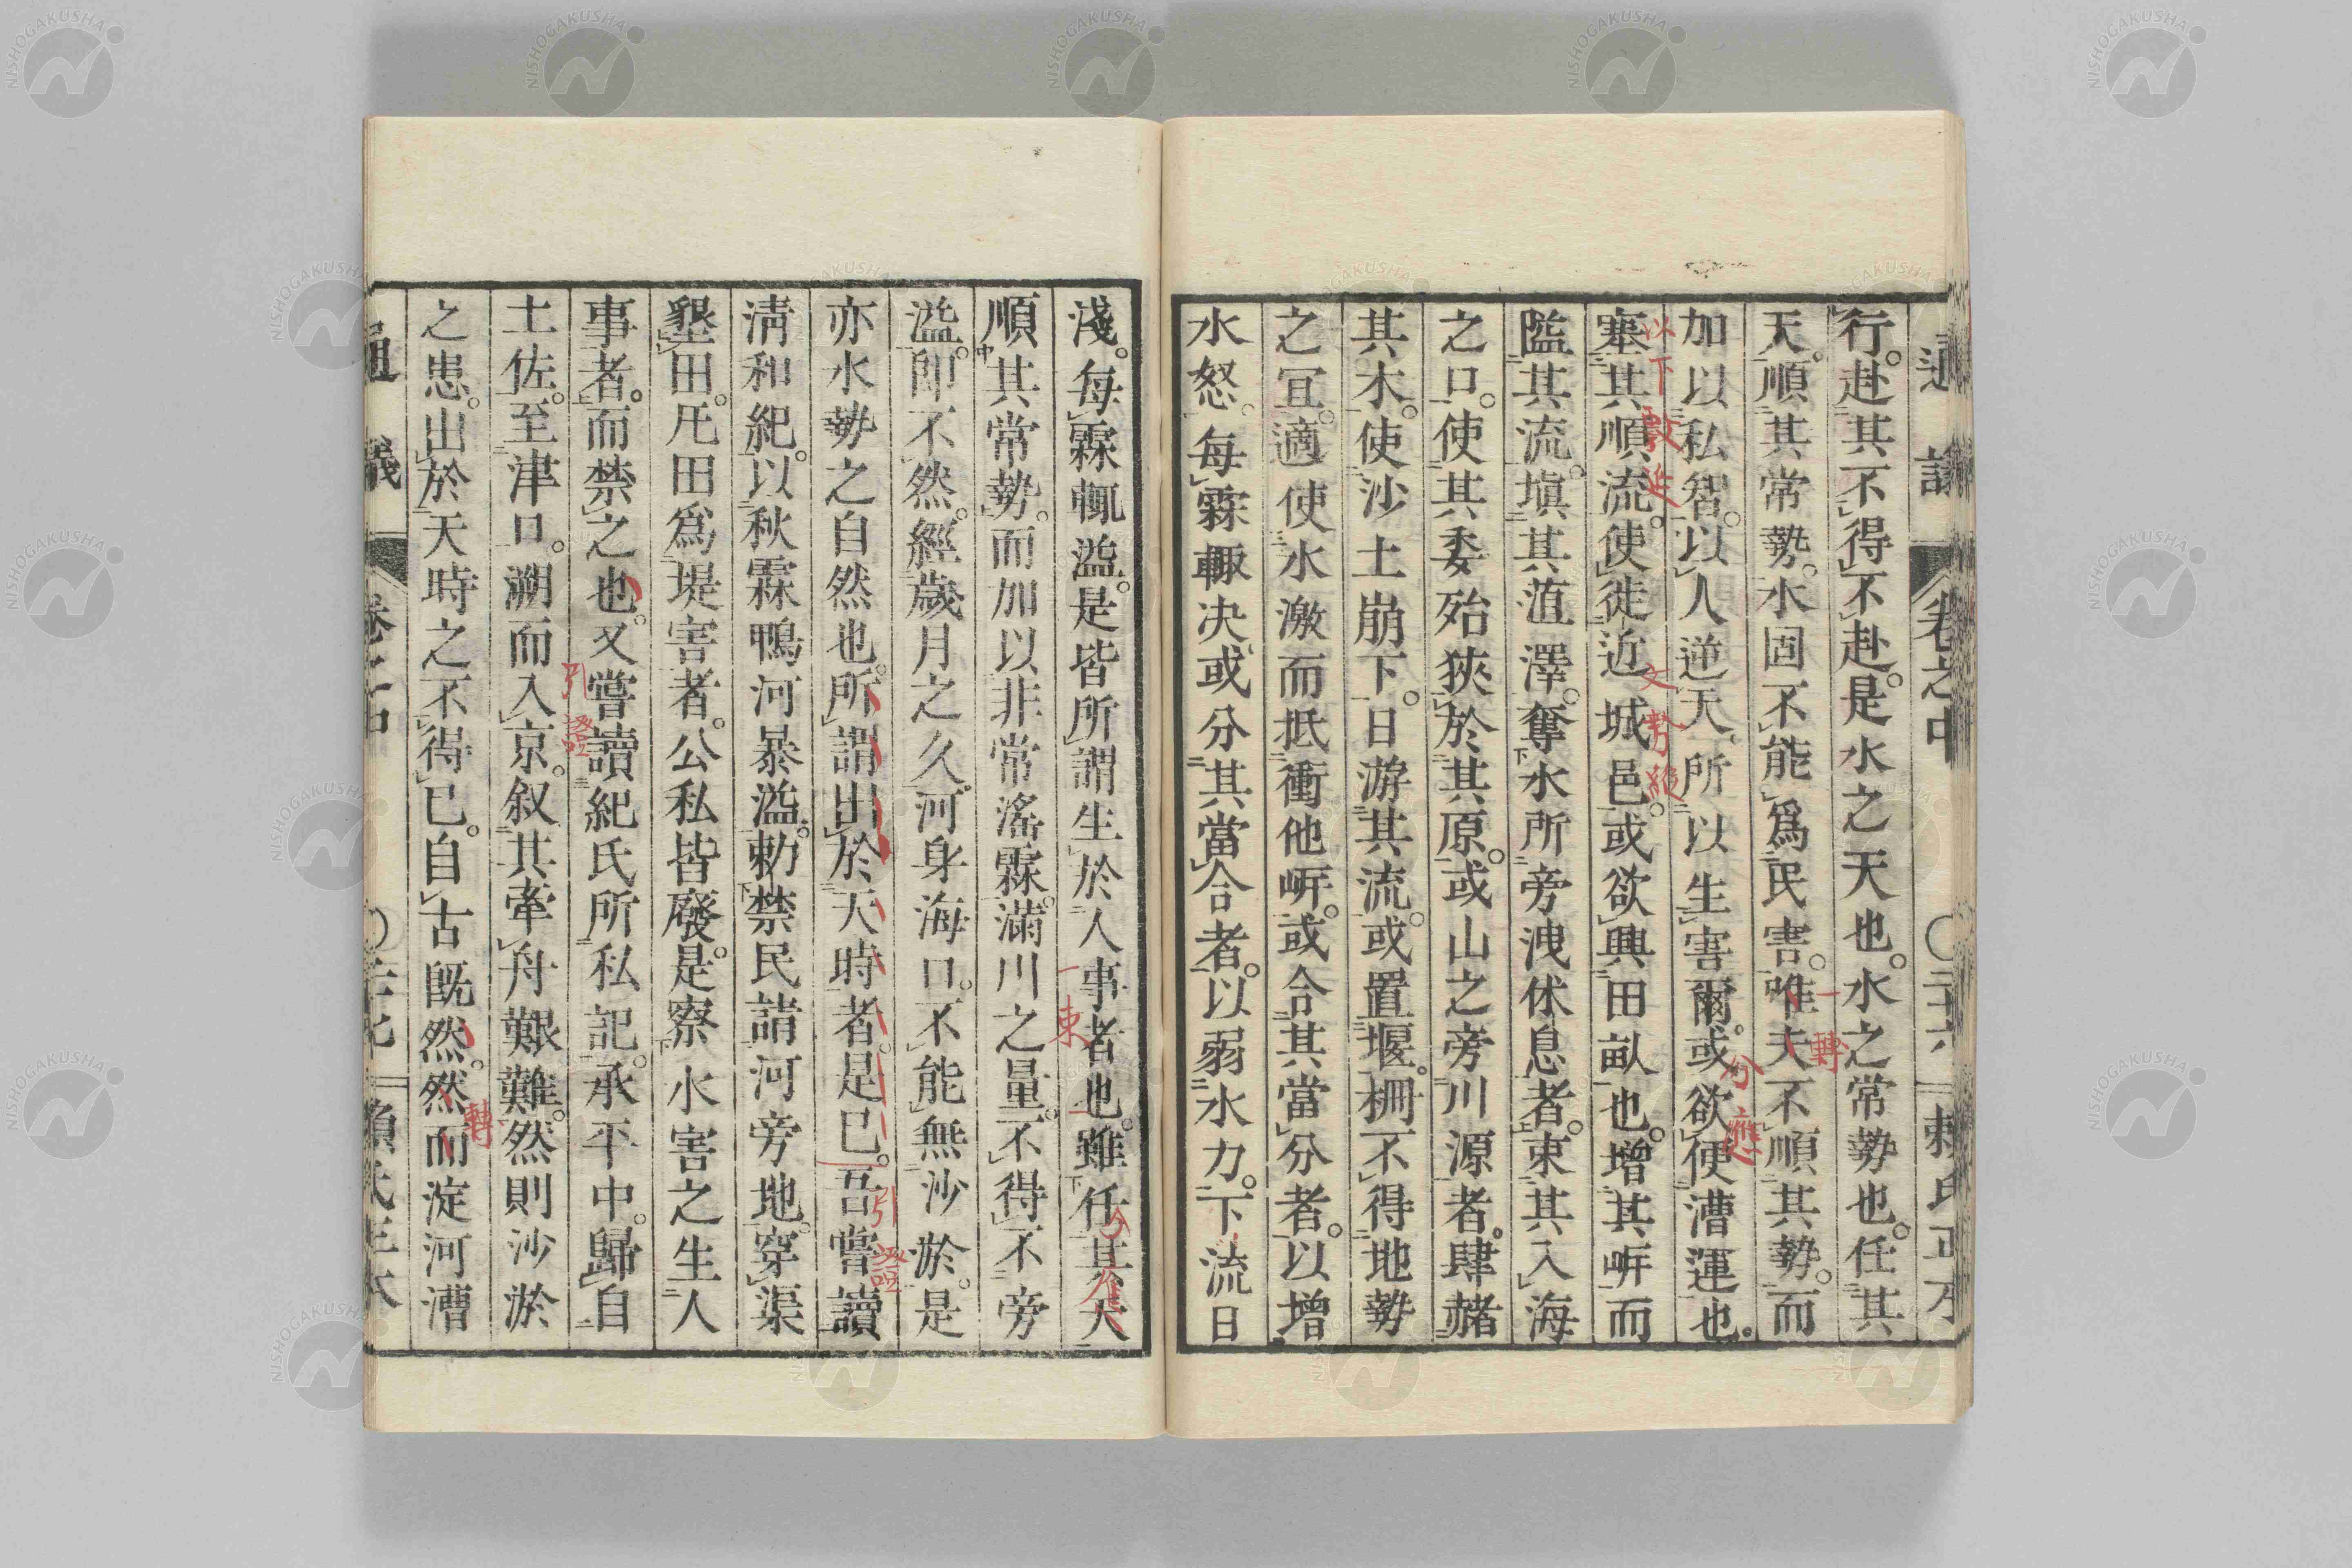 通議 卷之中 〇二十六 賴氏正本
行。赴其不得不赴。是水之天也。水之常勢也。任其
天。順其常勢。水固不能爲民害。唯夫不順其勢。而
加以私智。以人逆天。所以生害爾。或欲便漕運也。
塞其順流。使徒近城邑。或欲興田畝也。增其岍而
隘其流。塡其瀦澤。奪水所旁洩休息者。束其入海
之口。使其委殆狹於其原。或山之旁川源者。肆赭
其木。使沙土崩下。日游其流。或置堰柵。不得地勢
之宜。適使水激而抵衝他岍。或合其當分者。以增
水怒。每霖輙决。或分其當合者。以弱水力。下流日
淺。每霖輒溢。是皆所謂生於人事者也。雖任其天
順其常勢。而加以非常滛霖。滿川之量。不得不旁
溢。卽不然。經歲月之久。河身海口。不能無沙淤。是
亦水勢之自然也。所謂出於天時者。是已。吾嘗讀
淸和紀。以秋霖鴨河暴溢。勅禁民請河旁地。穿渠
墾田。凡田爲堤害者。公私皆廢。是察水害之生人
事者。而禁之也。又嘗讀紀氏所私記。承平中。歸自
土佐。至津口。溯而入京。叙其牽舟艱難。然則沙淤
之患。出於天時之不得已。自古旣然。然而淀河漕
以下敷迚
文勢絕
一轉
分應
一束
分應
引證
引證
轉
NISHOGAKUSHA